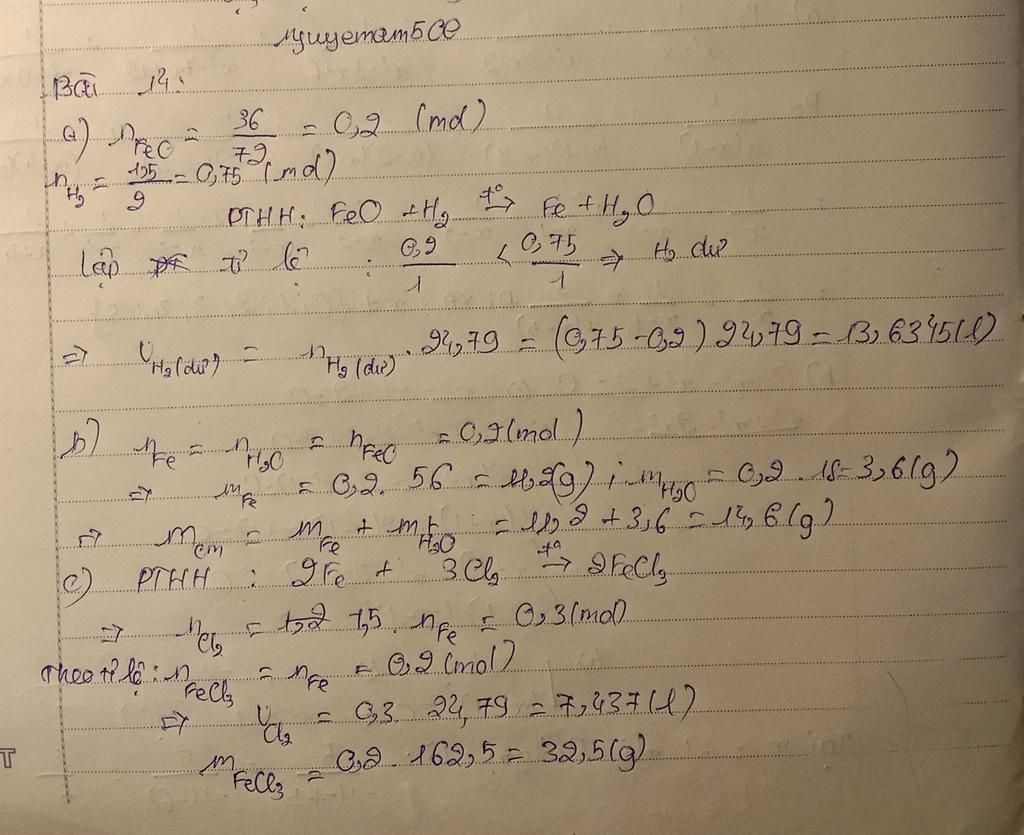 nguyetam5CE
Bài 14:
a) n FeO = 36/72 = 0,2 (mol)
n H2 = 1,5/2 = 0,75 (mol)
PTHH: FeO + H2 t°→ Fe + H2O
Lập tỉ lệ : 0,2/1 < 0,75/1 ⇒ H2 dư
⇒ V H2(dư) = n H2(dư) . 24,79 = (0,75 - 0,2) 24,79 = 13,6345(l)
b) n Fe = n H2O = n FeO = 0,2(mol)
⇒ m Fe = 0,2. 56 = 11,2(g) ; m H2O = 0,2 . 18 = 3,6(g)
⇒ m cm = m Fe + m H2O = 11,2 + 3,6 = 14,6(g)
c) PTHH : 2Fe + 3Cl2 t°→ 2FeCl3
⇒ n Cl2 = 1,5. n Fe = 0,3(mol)
Theo tỉ lệ: n FeCl3 = n Fe = 0,2(mol)
⇒ V Cl2 = 0,3. 24,79 = 7,437(l)
m FeCl3 = 0,2 . 162,5 = 32,5(g)
T